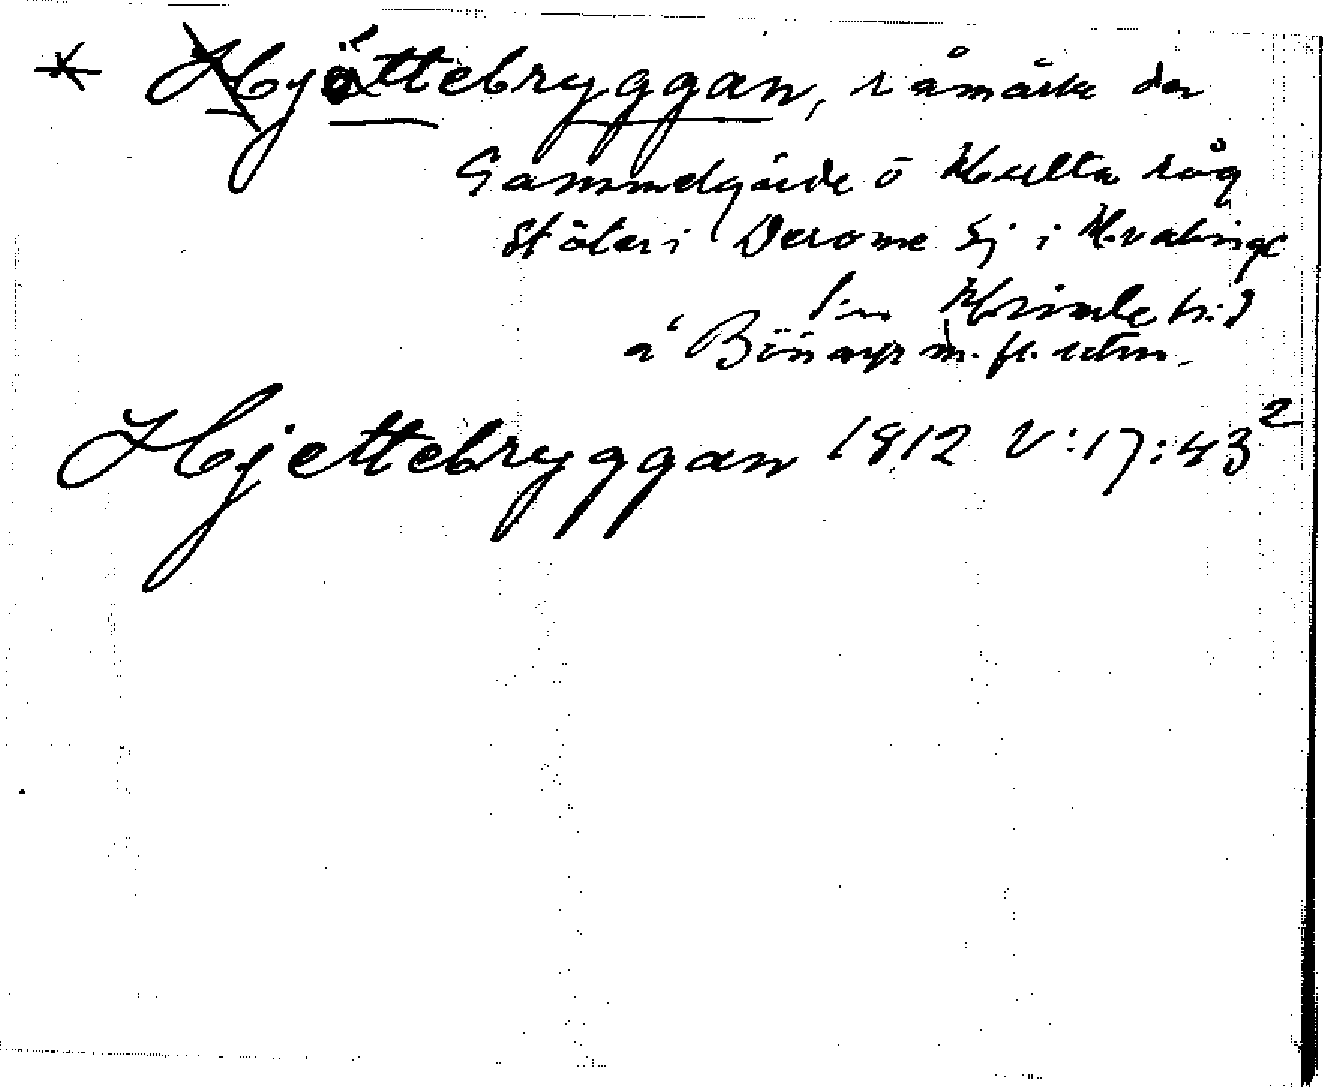 Hjöttebryggan, råmärke der
Gammelgärde o Hulta råg
stöter i Derome Sj i Hvalinge
Sn Himle hd
å Bönarp m. fl. utm.
Hjettebryggan 1812 V:17:43²